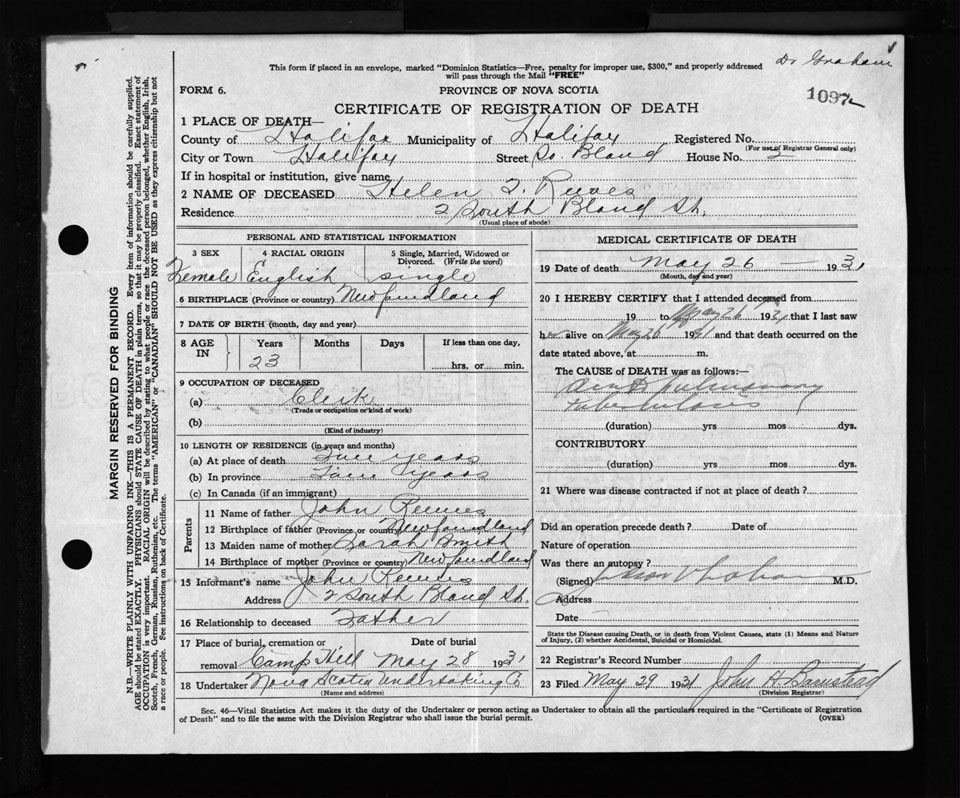 Dr Graham
This form if placed in an envelope, marked "Dominion Statistics—Free, penalty for improper use, $300," and properly addressed
will pass through the Mail "FREE"
1097
FORM 6. PROVINCE OF NOVA SCOTIA
CERTIFICATE OF REGISTRATION OF DEATH
1 PLACE OF DEATH—
County of Halifax Municipality of Halifax Registered No.
(For use of Registrar General only)
City or Town Halifax Street So. Bland House No. 2
If in hospital or institution, give name
2 NAME OF DECEASED Helen I. Reeves
Residence 2 South Bland St.
(Usual place of abode)
PERSONAL AND STATISTICAL INFORMATION
3 SEX 4 RACIAL ORIGIN 5 Single, Married, Widowed or
Divorced. (Write the word)
Female English single
6 BIRTHPLACE (Province or country) Newfoundland
7 DATE OF BIRTH (month, day and year)
8 AGE IN Years Months Days If less than one day,
23 hrs. or min.
9 OCCUPATION OF DECEASED
(a) Clerk
(Trade or occupation or kind of work)
(b)
(Kind of industry)
10 LENGTH OF RESIDENCE (in years and months)
(a) At place of death years
(b) In province years
(c) In Canada (if an immigrant)
Parents
11 Name of father John Reeves
12 Birthplace of father (Province or country) Newfoundland
13 Maiden name of mother Sarah Smith
14 Birthplace of mother (Province or country) Newfundland
15 Informant's name John Reeves
Address 2 South Bland St.
16 Relationship to deceased Father
17 Place of burial, cremation or Date of burial
removal Camp Hill May 28 1931
18 Undertaker Nova Scotia Undertaking Co
(Name and address)
MEDICAL CERTIFICATE OF DEATH
19 Date of death May 26 — 1931
(Month, day and year)
20 I HEREBY CERTIFY that I attended deceased from
19 to May 26 1931 that I last saw
her alive on May 26 1931 and that death occurred on the
date stated above, at m.
The CAUSE of DEATH was as follows:—
pulmonary
tuberculosis
(duration) yrs mos dys.
CONTRIBUTORY
(duration) yrs mos dys.
21 Where was disease contracted if not at place of death?
Did an operation precede death? Date of
Nature of operation
Was there an autopsy?
(Signed) M.D.
Address
Date
State the Disease causing Death, or in death from Violent Causes, state (1) Means and Nature
of Injury, (2) whether Accidental, Suicidal or Homicidal.
22 Registrar's Record Number
23 Filed May 29 1931 John H. Barnstead
(Division Registrar)
Sec. 46—Vital Statistics Act makes it the duty of the Undertaker or person acting as Undertaker to obtain all the particulars required in the "Certificate of Registration
of Death" and to file the same with the Division Registrar who shall issue the burial permit. (OVER)
MARGIN RESERVED FOR BINDING
N.B.—WRITE PLAINLY WITH UNFADING INK—THIS IS A PERMANENT RECORD. Every item of information should be carefully supplied.
AGE should be stated EXACTLY. PHYSICIANS should STATE CAUSE OF DEATH in plain terms, so that it may be properly classified. Exact statement of
OCCUPATION is very important. RACIAL ORIGIN will be described by stating to what people or race the deceased person belonged, whether English, Irish,
Scotch, French, German, Russian, Ruthenian, etc. The terms "AMERICAN" or "CANADIAN" SHOULD NOT BE USED as they express citizenship but not
a race or people. See instructions on back of Certificate.